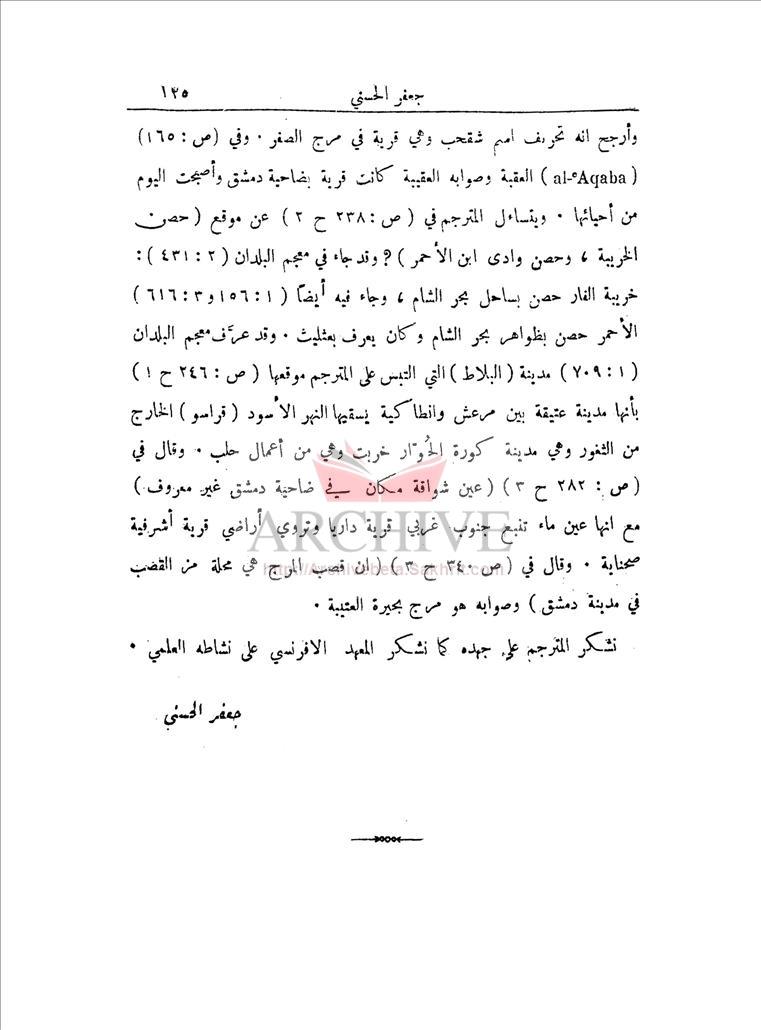 جعفر الحسني ١٣٥
وأرجح انه تحريف اسم شقحب وهي قرية في مرج الصفر ٠ وفي ( ص : ١٦٥ )
( al-ᶜAqaba ) العقبة وصوابه العقيبة كانت قرية بضاحية دمشق وأصبحت اليوم
من أحيائها ٠ ويتساءل المترجم في ( ص : ٢٣٨ ح ٢ ) عن موقع ( حصن
الخريبة ، وحصن وادى ابن الأحمر ) ? وقد جاء في معجم البلدان ( ٢ : ٤٣١ ) :
خريبة الفار حصن بساحل بحر الشام ، وجاء فيه أيضاً ( ١ : ١٥٦ و ٣ : ٦١٦ )
الأحمر حصن بظواهر بحر الشام وكان يعرف بعثليث ٠ وقد عرَّف معجم البلدان
( ١ : ٧٠٩ ) مدينة ( البلاط ) التي التبس على المترجم موقعها ( ص : ٢٤٦ ح ١ )
بأنها مدينة عتيقة بين مرعش وانطاكية يسقيها النهر الأسود ( قراسو ) الخارج
من الثغور وهي مدينة كورة الحُوّار خربت وهي من أعمال حلب ٠ وقال في
( ص : ٢٨٢ ح ٣ ) ( عين شواقة مكان في ضاحية دمشق غير معروف )
مع انها عين ماء تنبع جنوب غربي قرية داريا وتروي أراضي قرية أشرفية
صحناية ٠ وقال في ( ص ٣٤٠ ح ٣ ) ( ان قصب المرج هي محلة من القضب
في مدينة دمشق ) وصوابه هو مرج بحيرة العتيبة ٠
نشكر المترجم على جهده كما نشكر المعهد الافرنسي على نشاطه العلمي ٠
جعفر الحسني
ARCHIVE
http://Archivebeta.Sakhrit.com